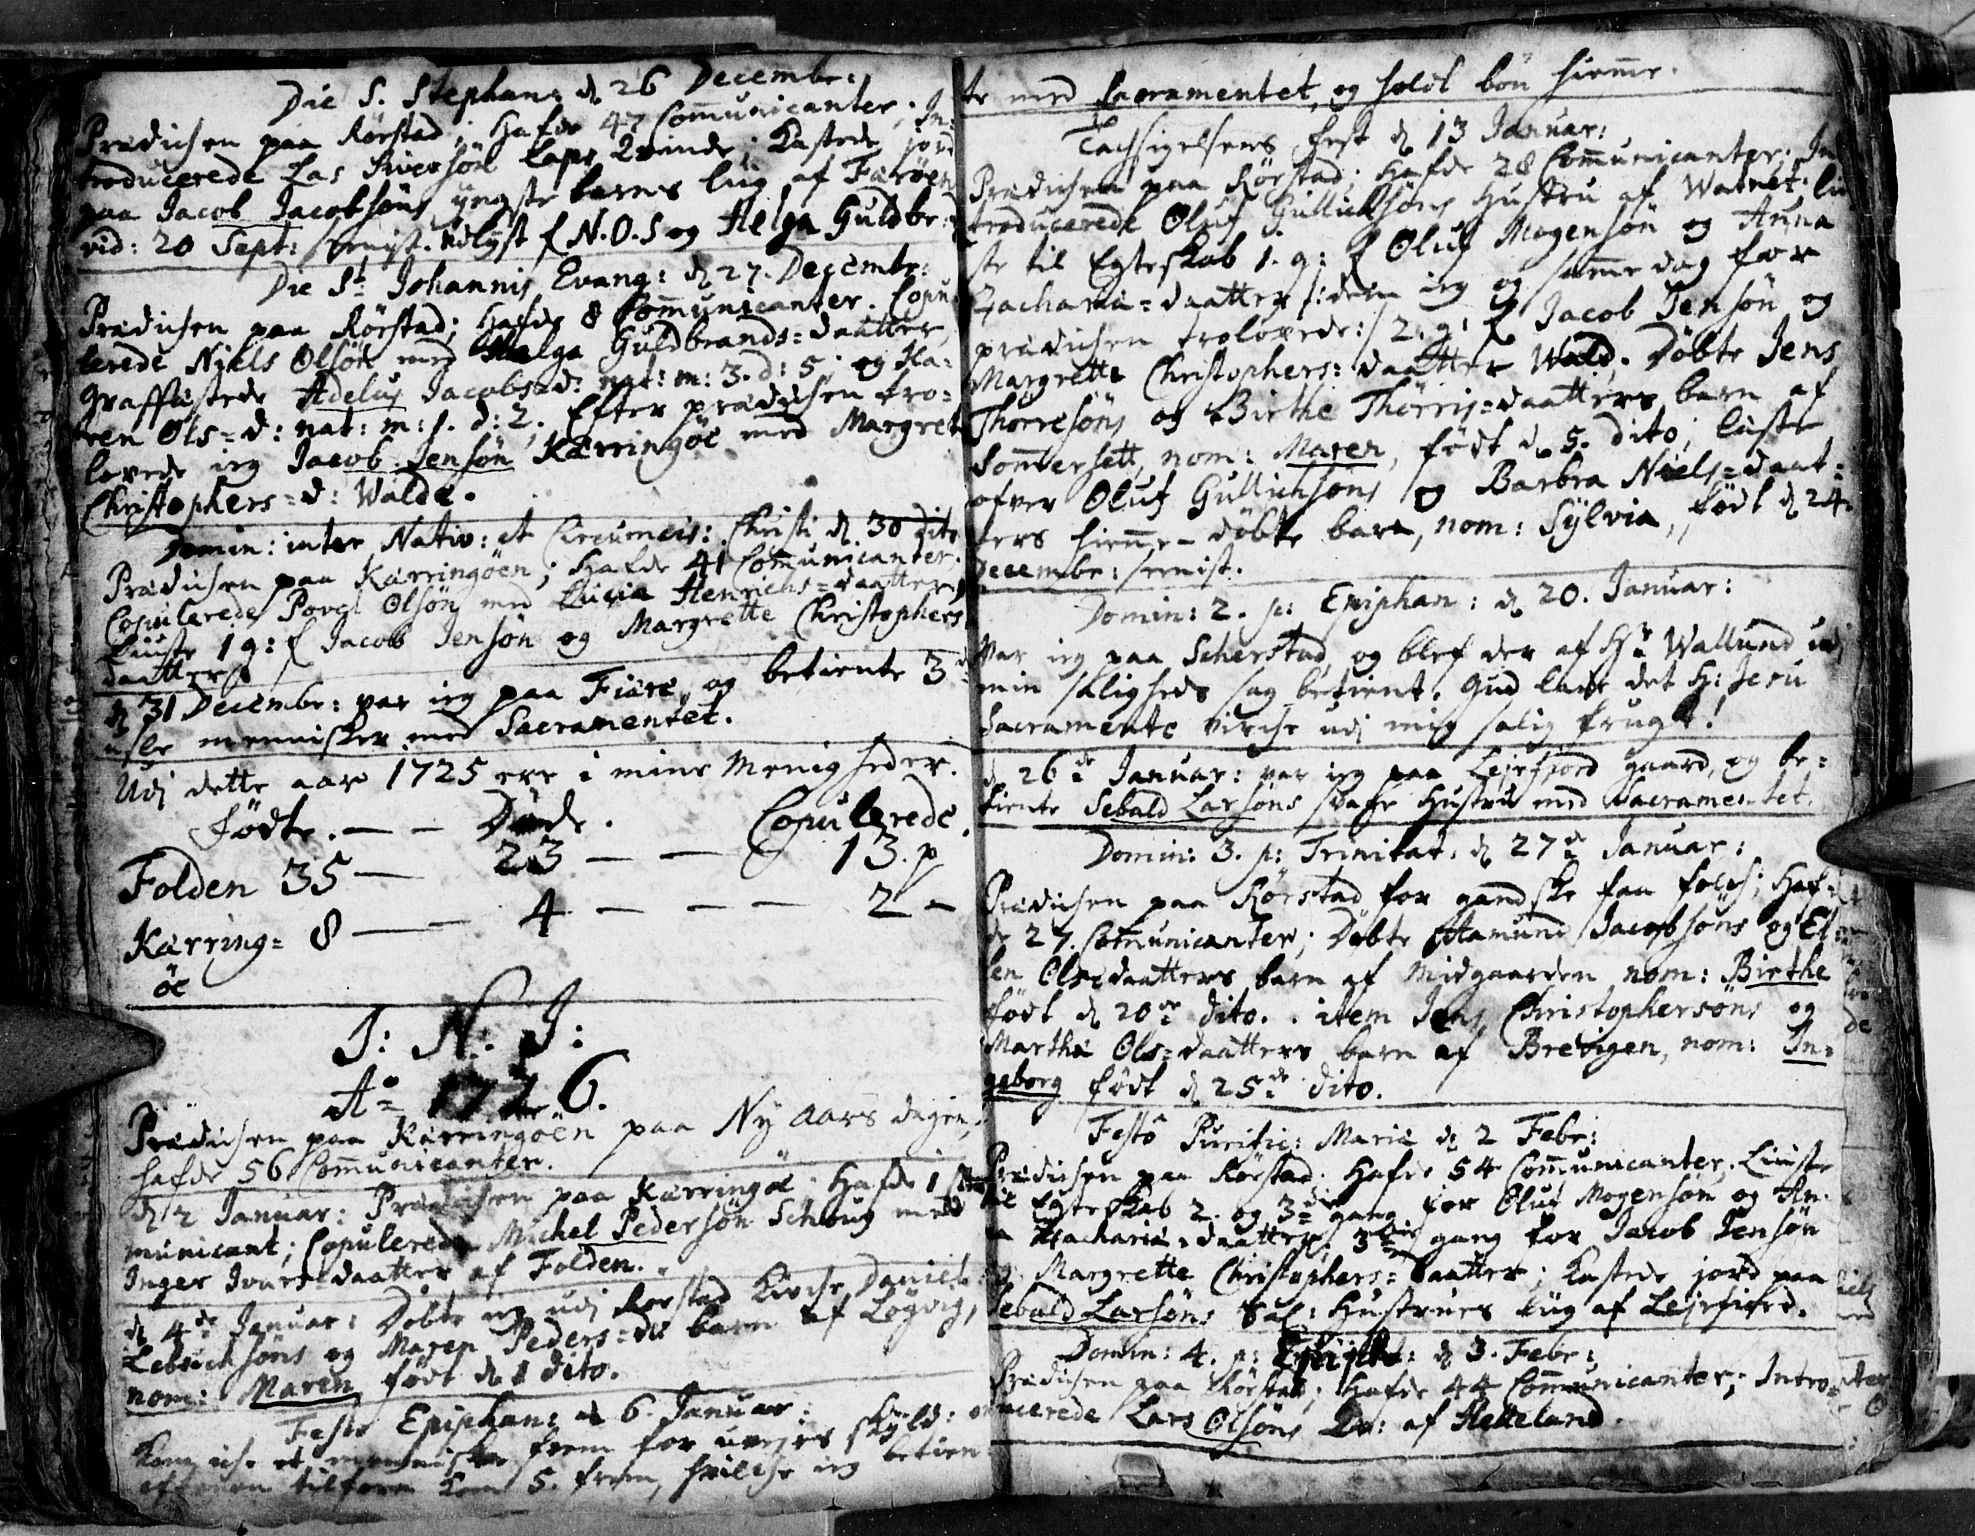 Die S. Stephan: d. 26 Decembr:
Prædichen paa Rörstad; Hafde 47 Communicanter; In-
troducerede Las Siversön Laps Qvinde; Kastede jord
paa Jacob Jacobsöns yngste barns liig af Færöen
vid: 20 Sept: sepist. Udlyst f N.O.S og Helga Guldbr: d
Die St Johannis Evang: d 27. Decembr:
Prædichen paa Rörstad; Hafde 8 Communicanter. Copu-
lerede Niels Olsön med Helga Guldbrands=daatter,
Graffæstede Adelus Jacobs d: nat: m: 3. d: 5; og Ka-
ren Ols=d: nat: m: s. d: 2, Efter prædichen tro=
lovede ieg Jacob Jensön Kærringöe med Margret
Christophers=d: Walde.
Domin: inter Nativ: et Circumcis: Christi d. 30 dito
Prædichen paa Kærringöen; Hafde 41 Communicanter.
Copulerede Povel Olsön med Lucia Henrichs=daatter,
Liuste 1 g: f Jacob Jensön og Margrette Christophers
daatter
d 31 Decembr: var ieg paa Fiære, og betiente 3
usle mennisker med Sacramentet.
Udj dette aar 1725 ere i mine Menigheder.
födte. — — Döde. Copulerede.
Folden 35 — 23 — — 13. p
Kærring= 8 — — 4 — — — 2 —
öe
I: N: J:
Ao 1726.
Prædichen paa Kærringöen paa Ny Aars dagen,
hafde 56 Communicanter.
d 2 Januar: Prædichen paa Kærringöe. Hafde 1 Com-
municant; Copulerede Michel Pedersön Schoug med
Inger Ivers=daatter af Folden.
d 4de Januar: Döbte ieg udj Rörstad Kirche Daniel
Lebuchsöns og Maren Peders=dr barn af Lögvig,
nom: Maren födt d 1 dito.
Festo Epiphan: d 6. Januar:
Kom iche et menniske frem for uvejrs skyld:
aftenen tilforn kom 5. frem, hvilche ieg betien-
te med Sacramentet, og holdt bön hiemme.
Tachsigelsens fest d 13 Januar:
Prædichen paa Rörstad; Hafde 28 Communicanter; In-
troducerede Oluf Gullichsöns Hustru af Watnet: liu-
ste til Egteskab 1. g: f Oluf Mogensön og Anna
Zachariæ=daatter /:dem ieg og samme dag för
prædichen trolovede:/ 2. g: f Jacob Jensön og
Margrette Christophers: daatter Wald; Döbte Jens
Thorresöns og Birthe Thörris=daatters barn af
Sommersett, nom: Maren, födt d 5. dito; læste
ofver Oluf Gullichsöns og Barbra Niels=daat=
ters hiemme=döbte barn, nom: Sylvia, födt d 24
Decembr: sepist.
Domin: 2. p: Epiphan: d 20. Januar:
Var ieg paa Scherstad, og blef der af Hr Wallund udj
min saligheds sag betient. Gud lade det H: Jesu
Sacramente virche udj mig salig frugt!
d 26de Januar: var ieg paa Lejefjord gaard, og be=
tiente Sebald Larsöns svage Hustru med Sacramentet.
Domin: 3. p: Trinitat: d 27de Januar:
Prædichen paa Rörstad for gandske faa folch; Haf-
de 27. Communicanter; Döbte Hamund Jacobsöns og El-
len Ols=daatters barn af Midgaarden nom: Birthe
födt d 20de dito. item Jens Christophersöns og
Martha Ols=daatters barn af Brevigen, nom: In=
geborg födt d 25de dito.
Festô Purific: Mariæ d 2 Febr:
Prædichen paa Rörstad. Hafde 54 Communicanter, Liuste
til Egteskab 2. og 3die gang for Oluf Mogensön og An-
na Zachariæ=daatter 3die gang for Jacob Jensön
og Margrette Christophers=daatter; Kastede jord paa
Sebald Larsöns Sal: Hustrues liig af Lejefiord.
Domin: 4. p: Epiph: d 3. Febr:
Prædichen paa Rörstad; Hafde 44 Communicanter; Intro-
ducerede Lars Olsöns Qv: af Helleland.